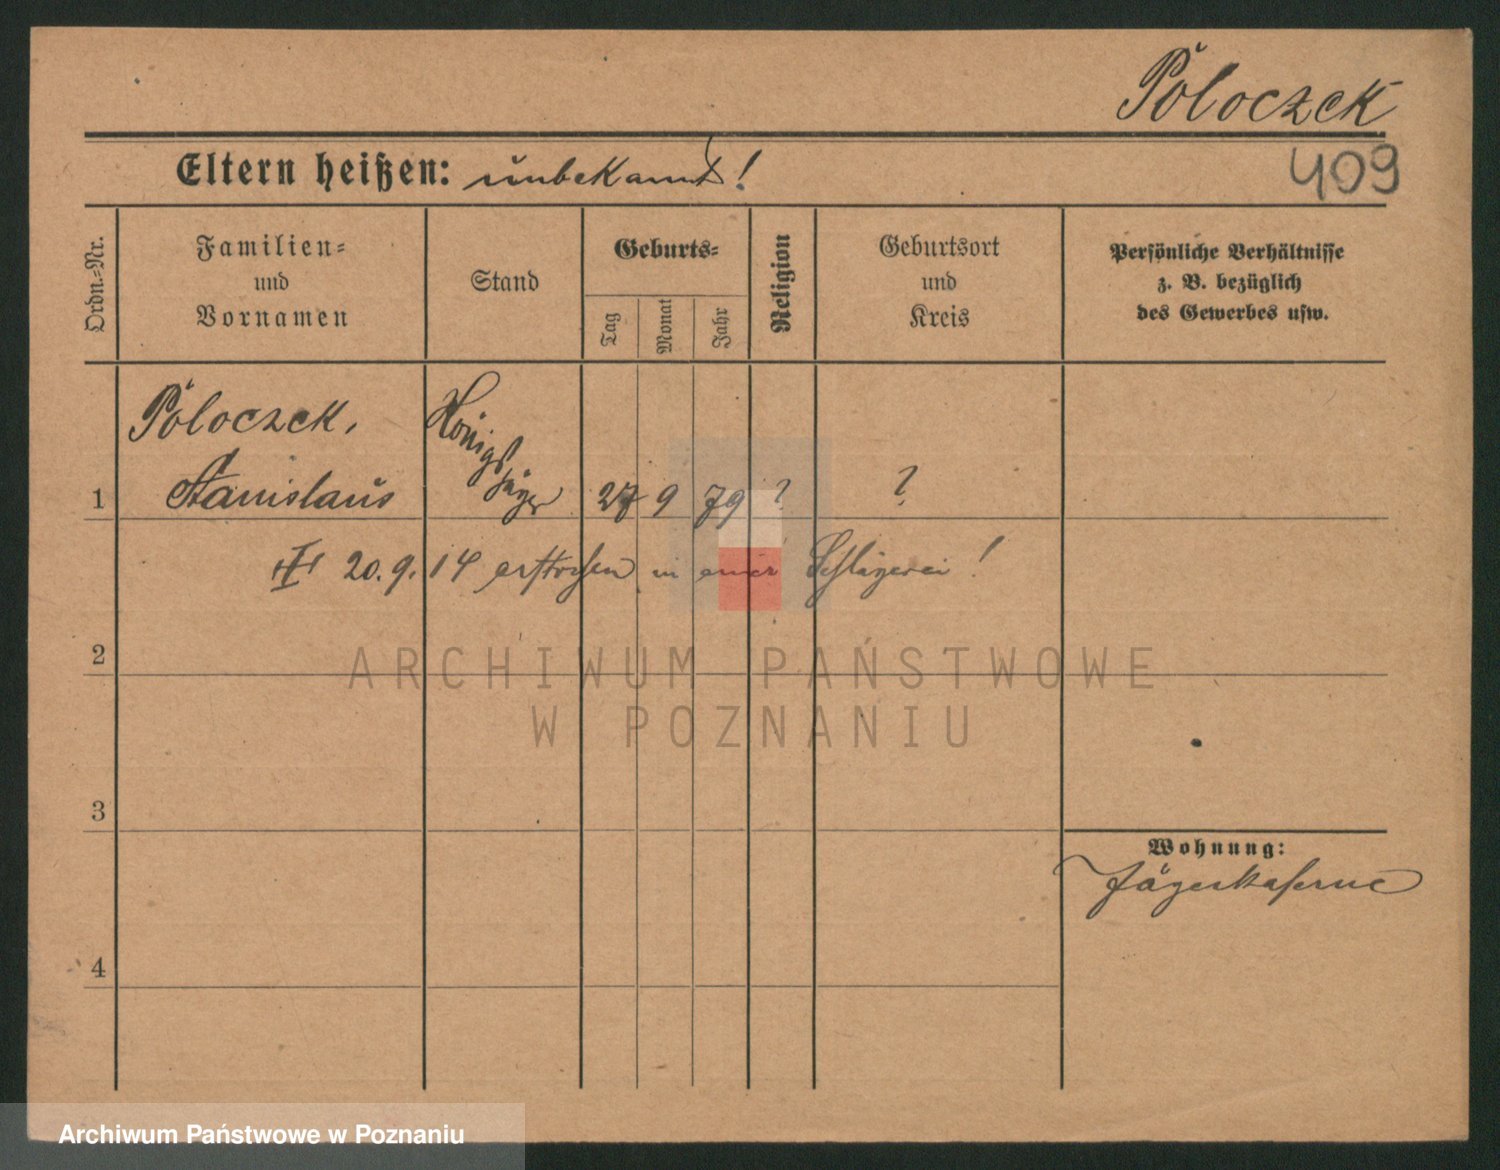 Poloczek
Eltern heißen: unbekannt!
409
Ordn.-Nr.
Familien-
und
Vornamen
Stand
Geburts-
Tag
Monat
Jahr
Religion
Geburtsort
und
Kreis
Persönliche Verhältnisse
z. B. bezüglich
des Gewerbes usw.
Poloczek,
Königs
jäger
1 Stanislaus 27 9 79 ? ?
20.9.14 erstochen in einer Schlägerei!
2
ARCHIWUM PAŃSTWOWE
W POZNANIU
3
Wohnung:
Jägerkaserne
4
Archiwum Państwowe w Poznaniu